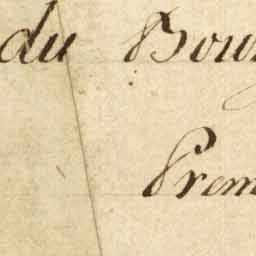 du Bour
Prem